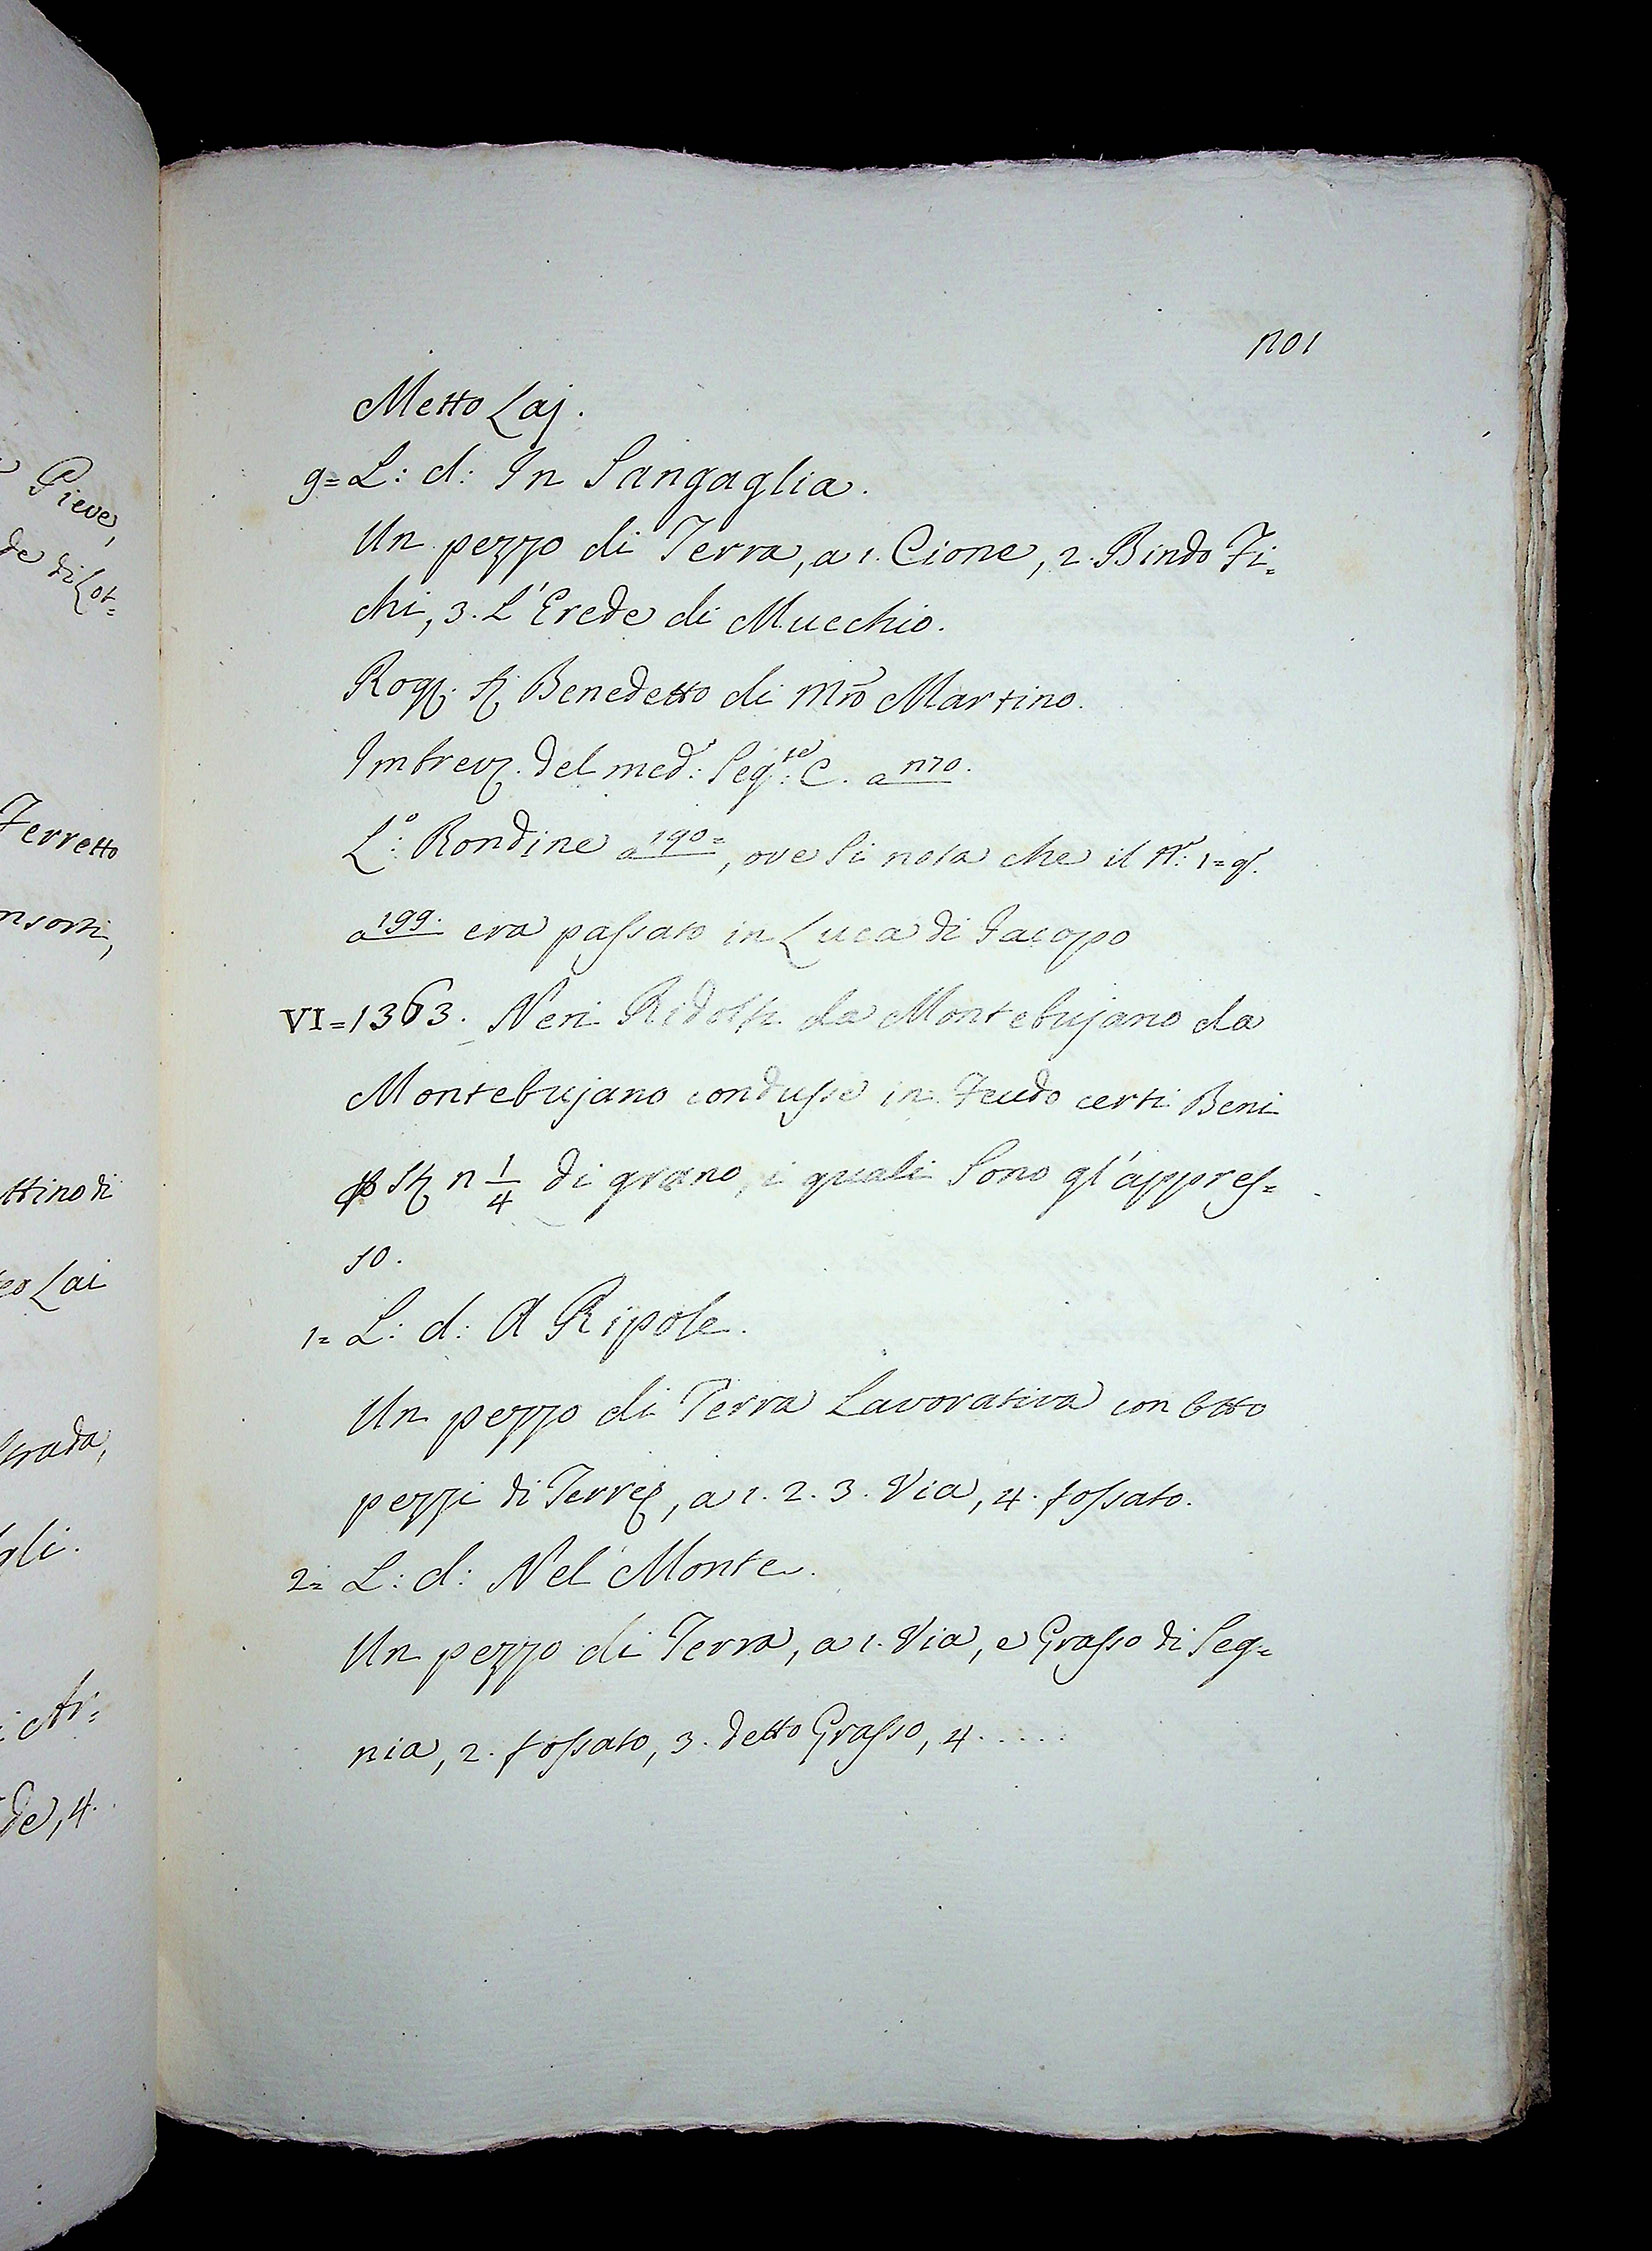 Pieve,
de di Lot=
Ferretto
nsorti,
ttino di
Lai
Strada,
gli.
Ar=
de, 4.
1701
Metto Laj.
9= L: d: In Sangaglia.
Un pezzo di Terra, a 1. Cione, 2. Bindo Fi=
chi, 3. L'Erede di Mucchio.
Rog. Benedetto di Mrõ Martino.
Imbrev. del med: Seg:te C. a 170.
L:o Rondine a 190=, ove si nota che il N: 1= q.
a 199. era passato in Luca di Jacopo
VI= 1363. Neri Ridolfi da Montebujano da
Montebujano condusse in Feudo certi Beni
p St n 1/4 di grano, i quali sono gl'appres=
so.
1= L: d: A Ripole.
Un pezzo di Terra Lavorativa con otto
pezzi di Terre, a 1. 2. 3. Via, 4. fossato.
2= L: d: Nel Monte.
Un pezzo di Terra, a 1. Via, e Grasso di Seg=
nia, 2. fossato, 3. detto Grasso, 4.....